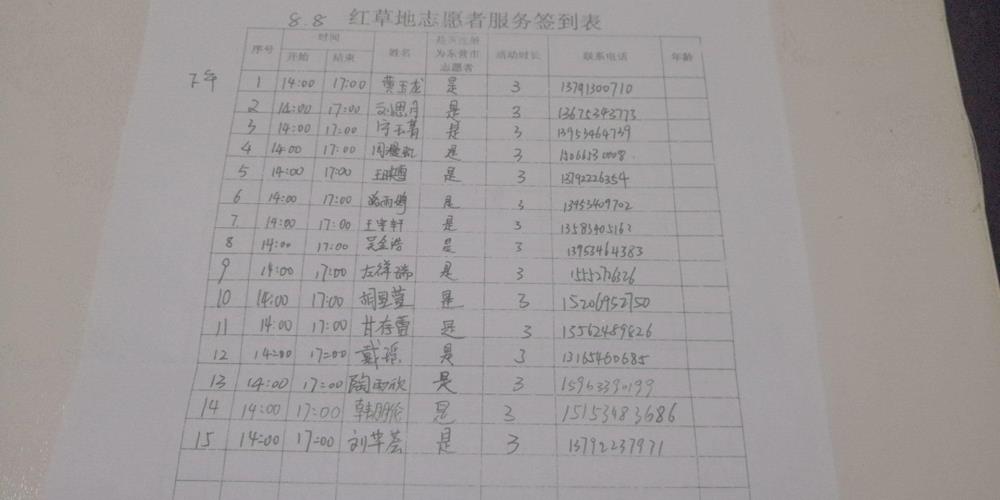 8.8 红草地志愿者服务签到表
序号 时间 开始 结束 姓名 是否注册为东营市志愿者 活动时长 联系电话 年龄
下午
1 14:00 17:00 黄玉龙 是 3 13791300710
2 14:00 17:00 刘思月 是 3 13675343773
3 14:00 17:00 守玉菁 是 3 13953464739
4 14:00 17:00 是 3
5 14:00 17:00 是 3 13792226354
6 14:00 17:00 是 3 13953409702
7 14:00 17:00 王宇轩 是 3 13583405162
8 14:00 17:00 吴金浩 是 3 13953464383
9 14:00 17:00 左祥瑞 是 3
10 14:00 17:00 胡思萱 是 3 15206952750
11 14:00 17:00 甘存蕾 是 3 13562489826
12 14:00 17:00 戴 是 3 13165460685
13 14:00 17:00 陶雨欣 是 3 15963390199
14 14:00 17:00 韩朋伦 是 3 15153483686
15 14:00 17:00 刘苹荟 是 3 13792237971